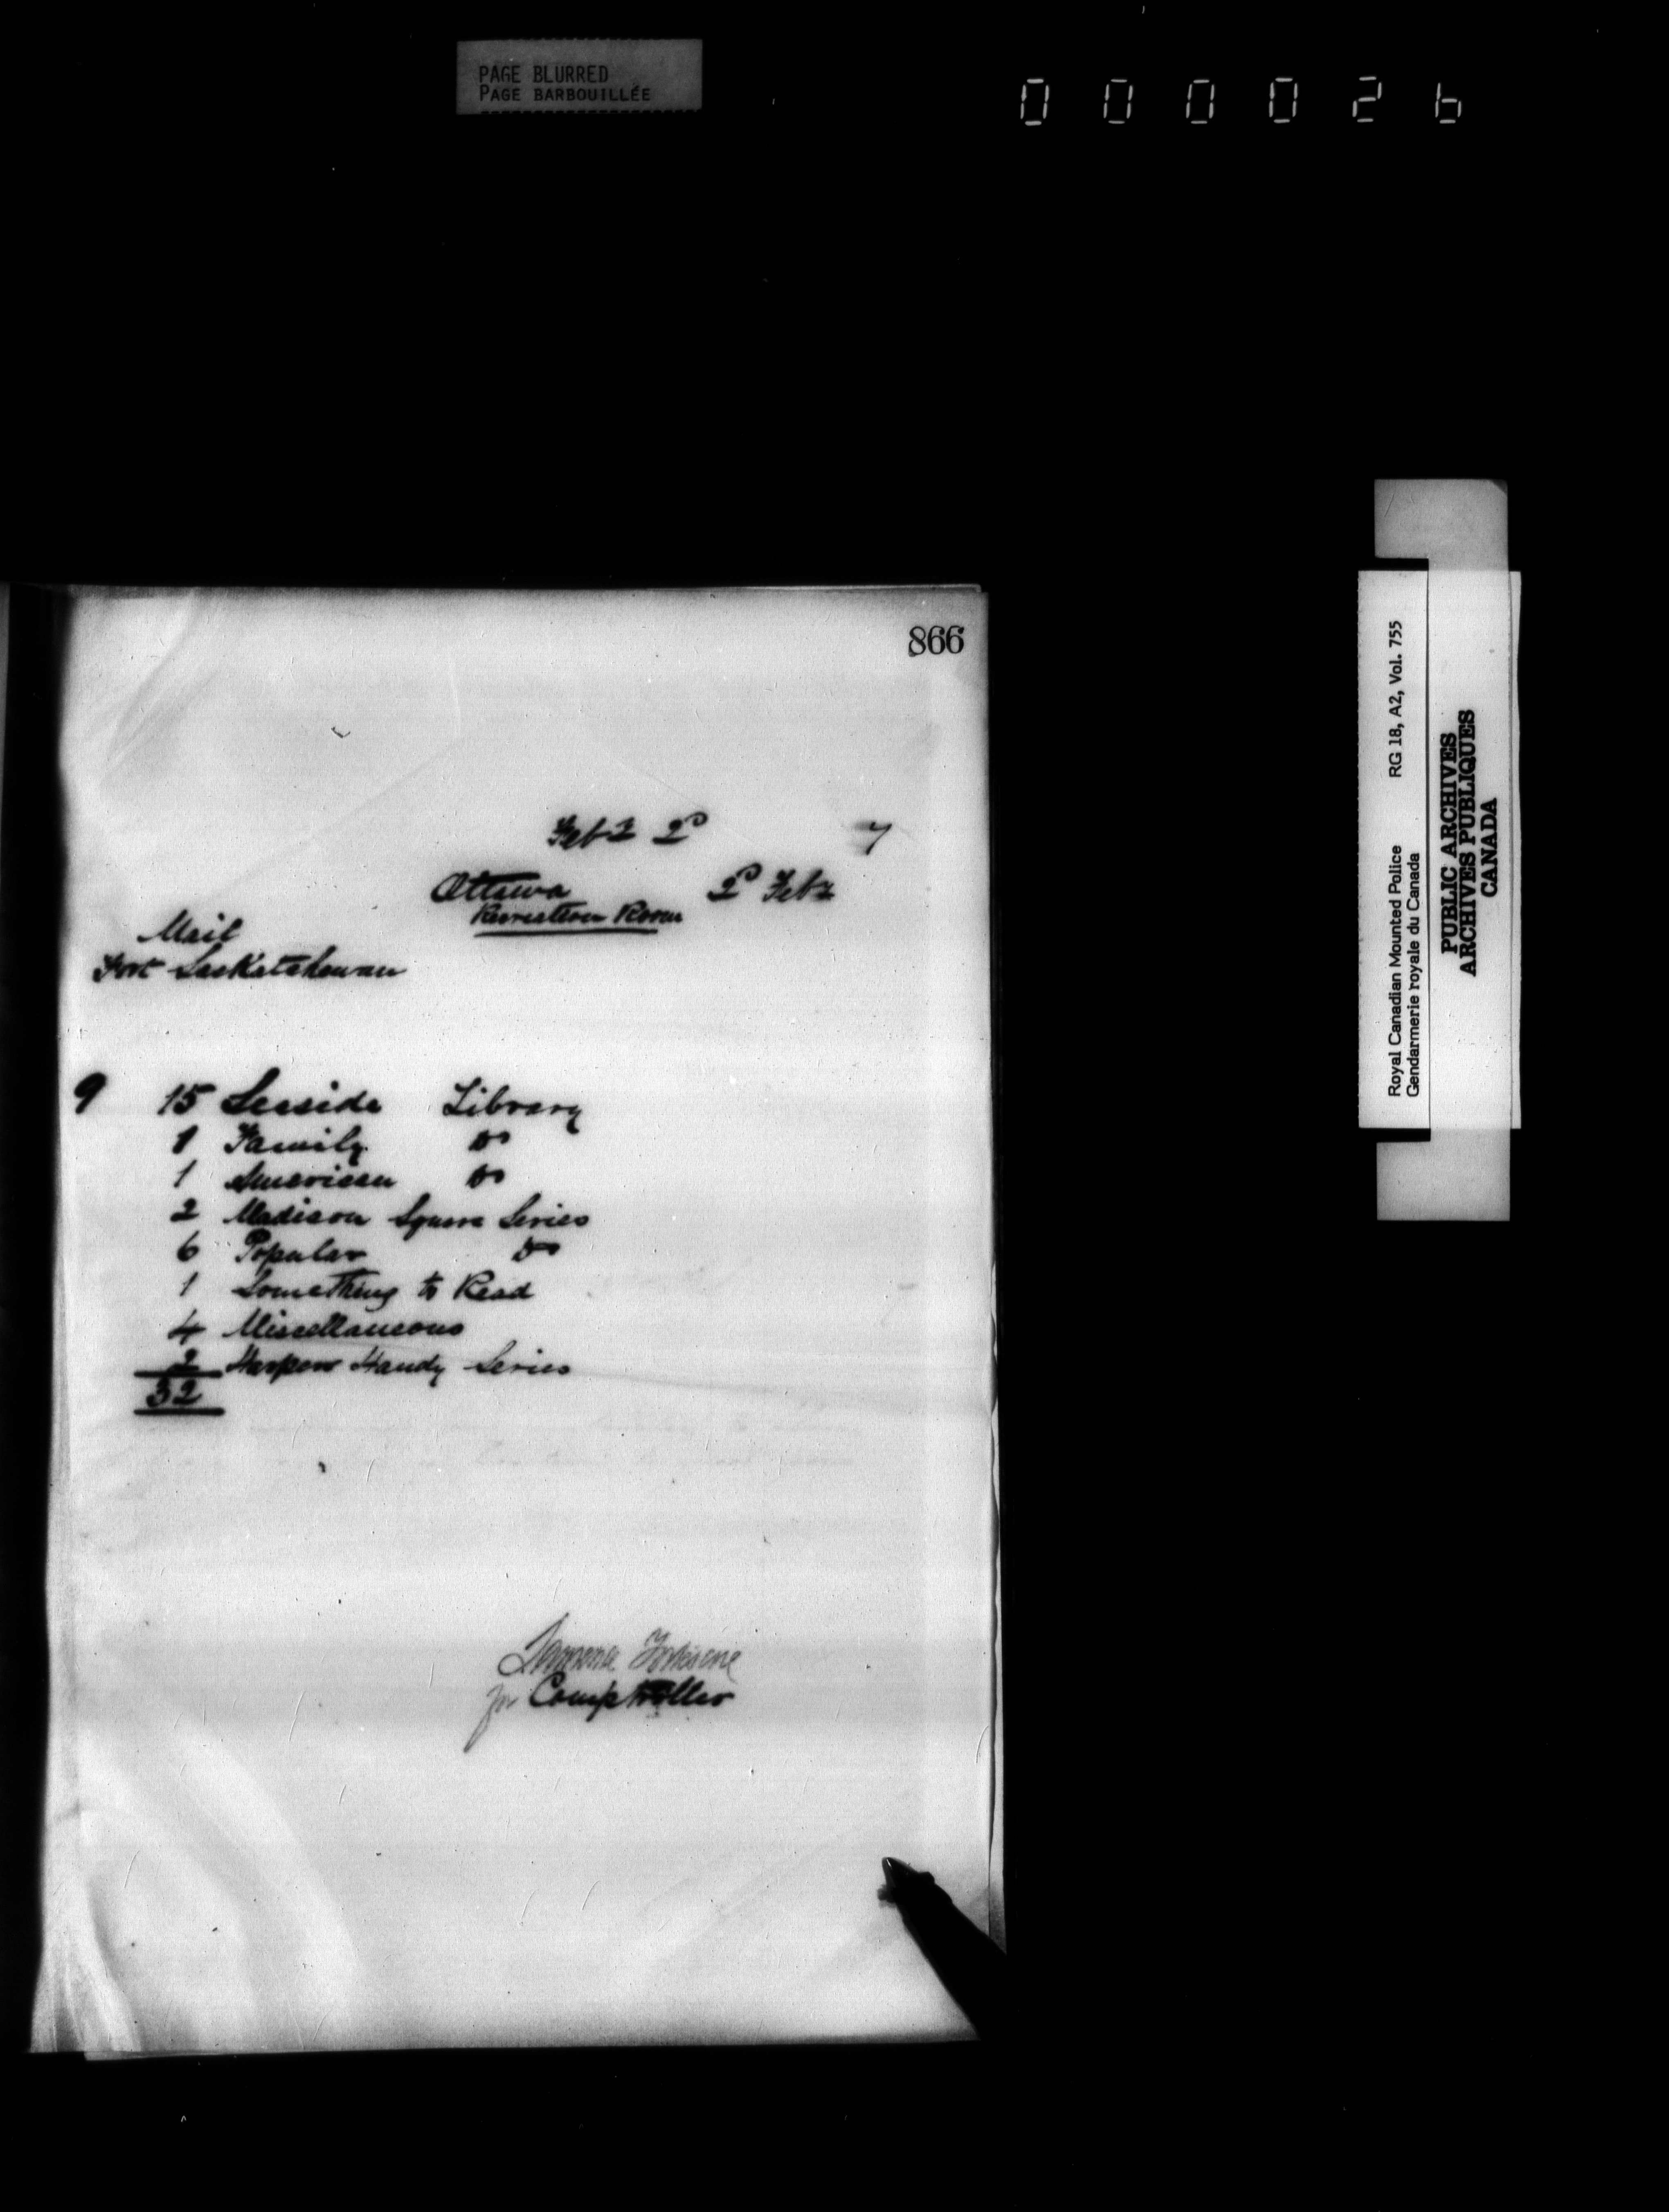 PAGE BLURRED
PAGE BARBOUILLÉE
000026
866
Feby 2D 7
Ottawa 2D Feby
Recreation Room
Mail
Fort Saskatchewan
9 15 Seaside Library
1 Family Do
1 American Do
2 Madison Square Series
6 Popular Do
1 Something to Read
4 Miscellaneous
2 Harpers Handy Series
32
Fortescue
for Comptroller
Royal Canadian Mounted Police RG 18, A2, Vol. 755
Gendarmerie royale du Canada
PUBLIC ARCHIVES
ARCHIVES PUBLIQUES
CANADA